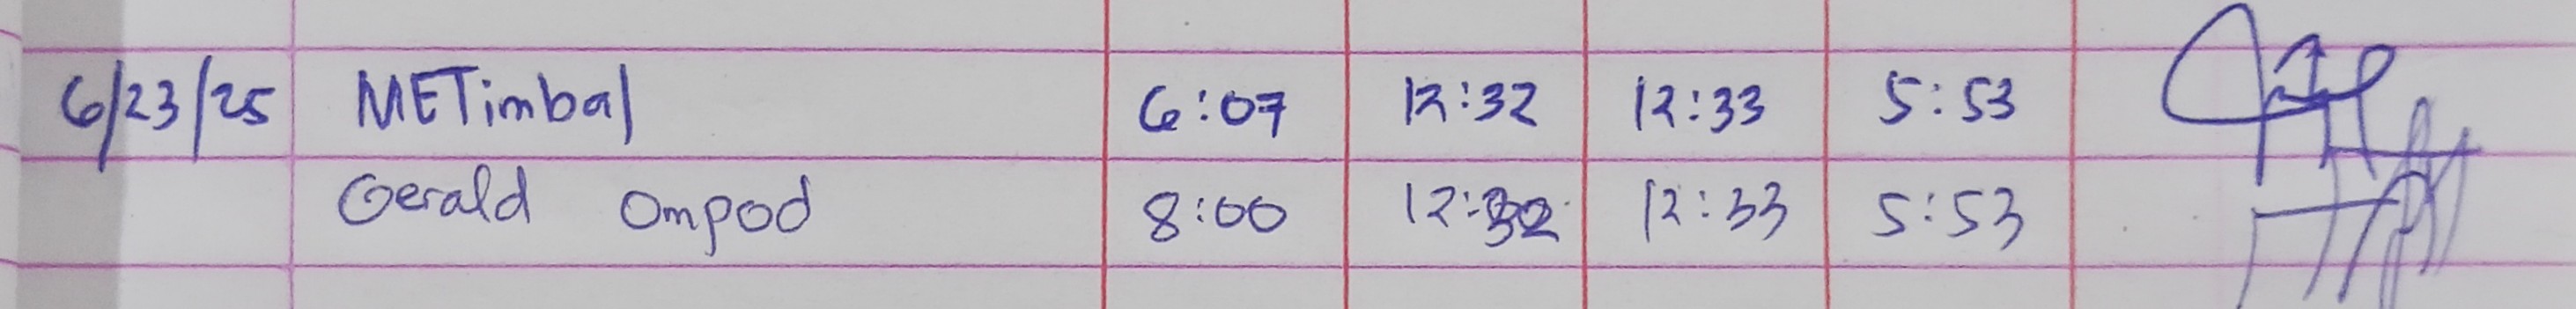 6/23/25 METimbal 6:07 12:32 12:33 5:53
Gerald Ompod 8:00 12:32 12:33 5:53